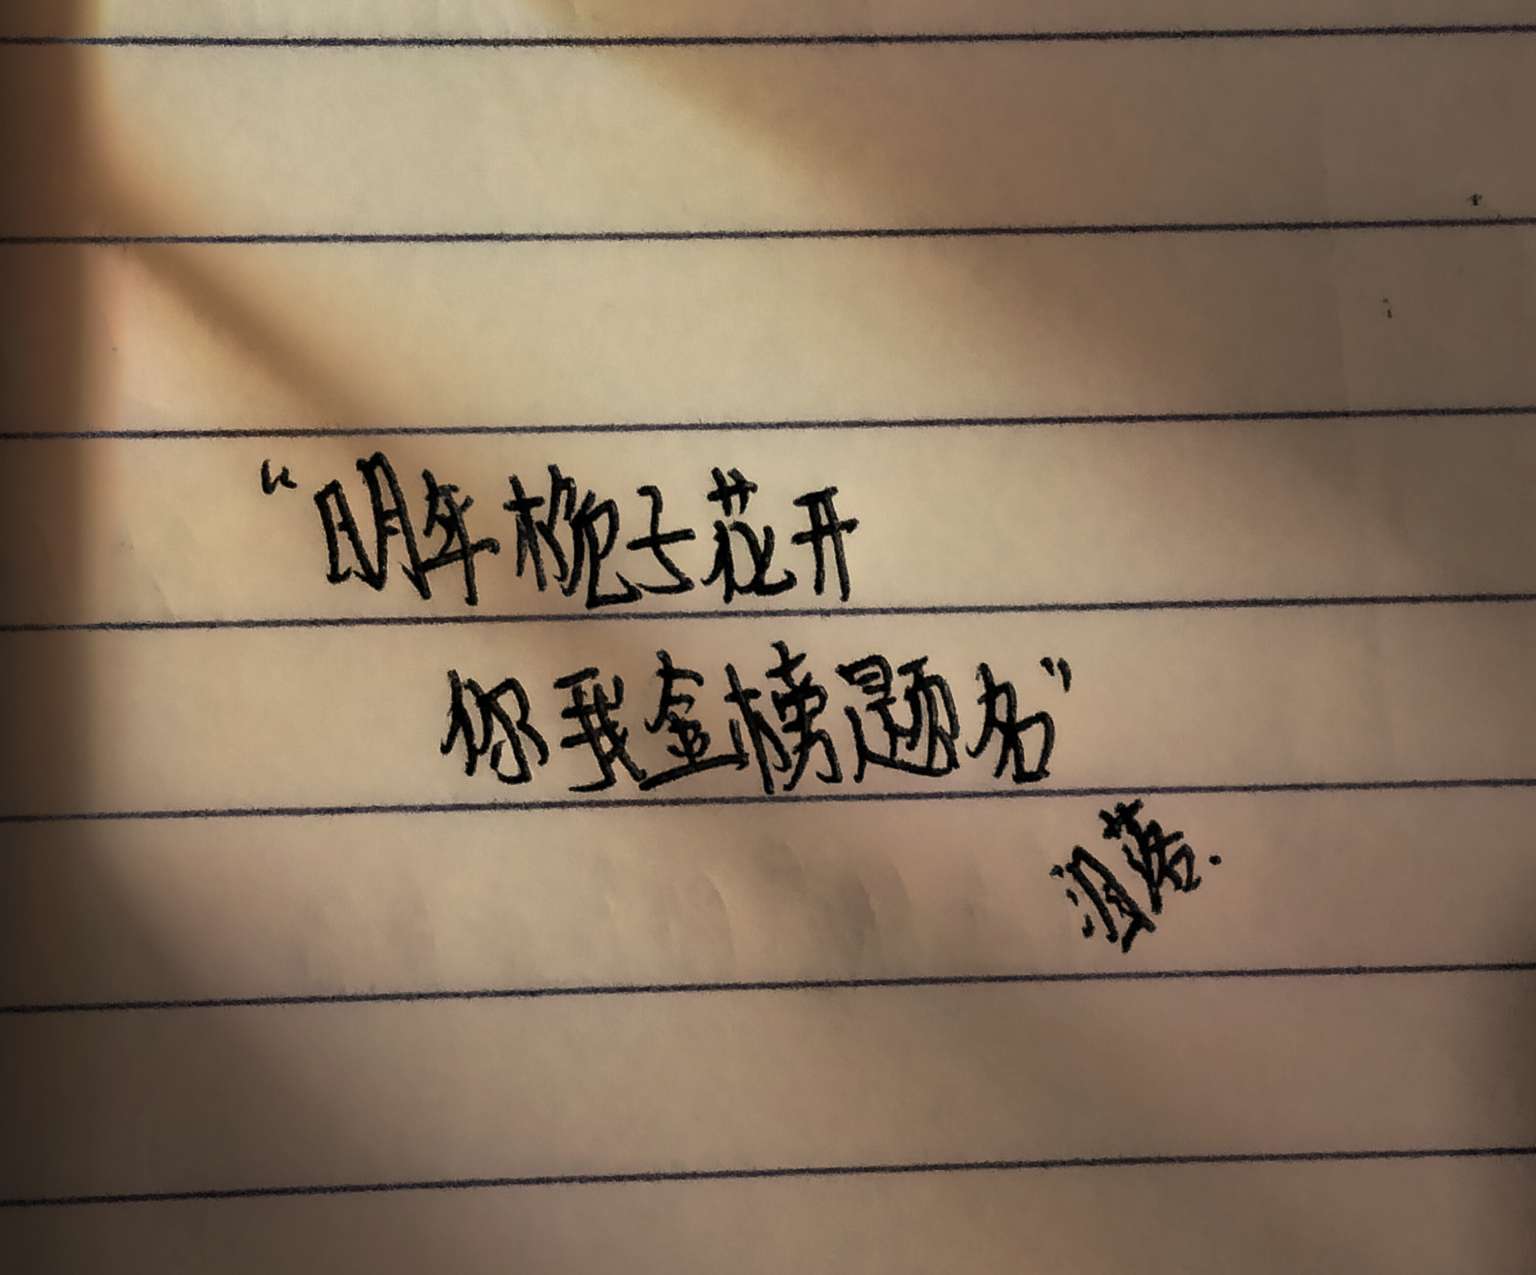 “明年栀子花开
你我金榜题名”
泪落.